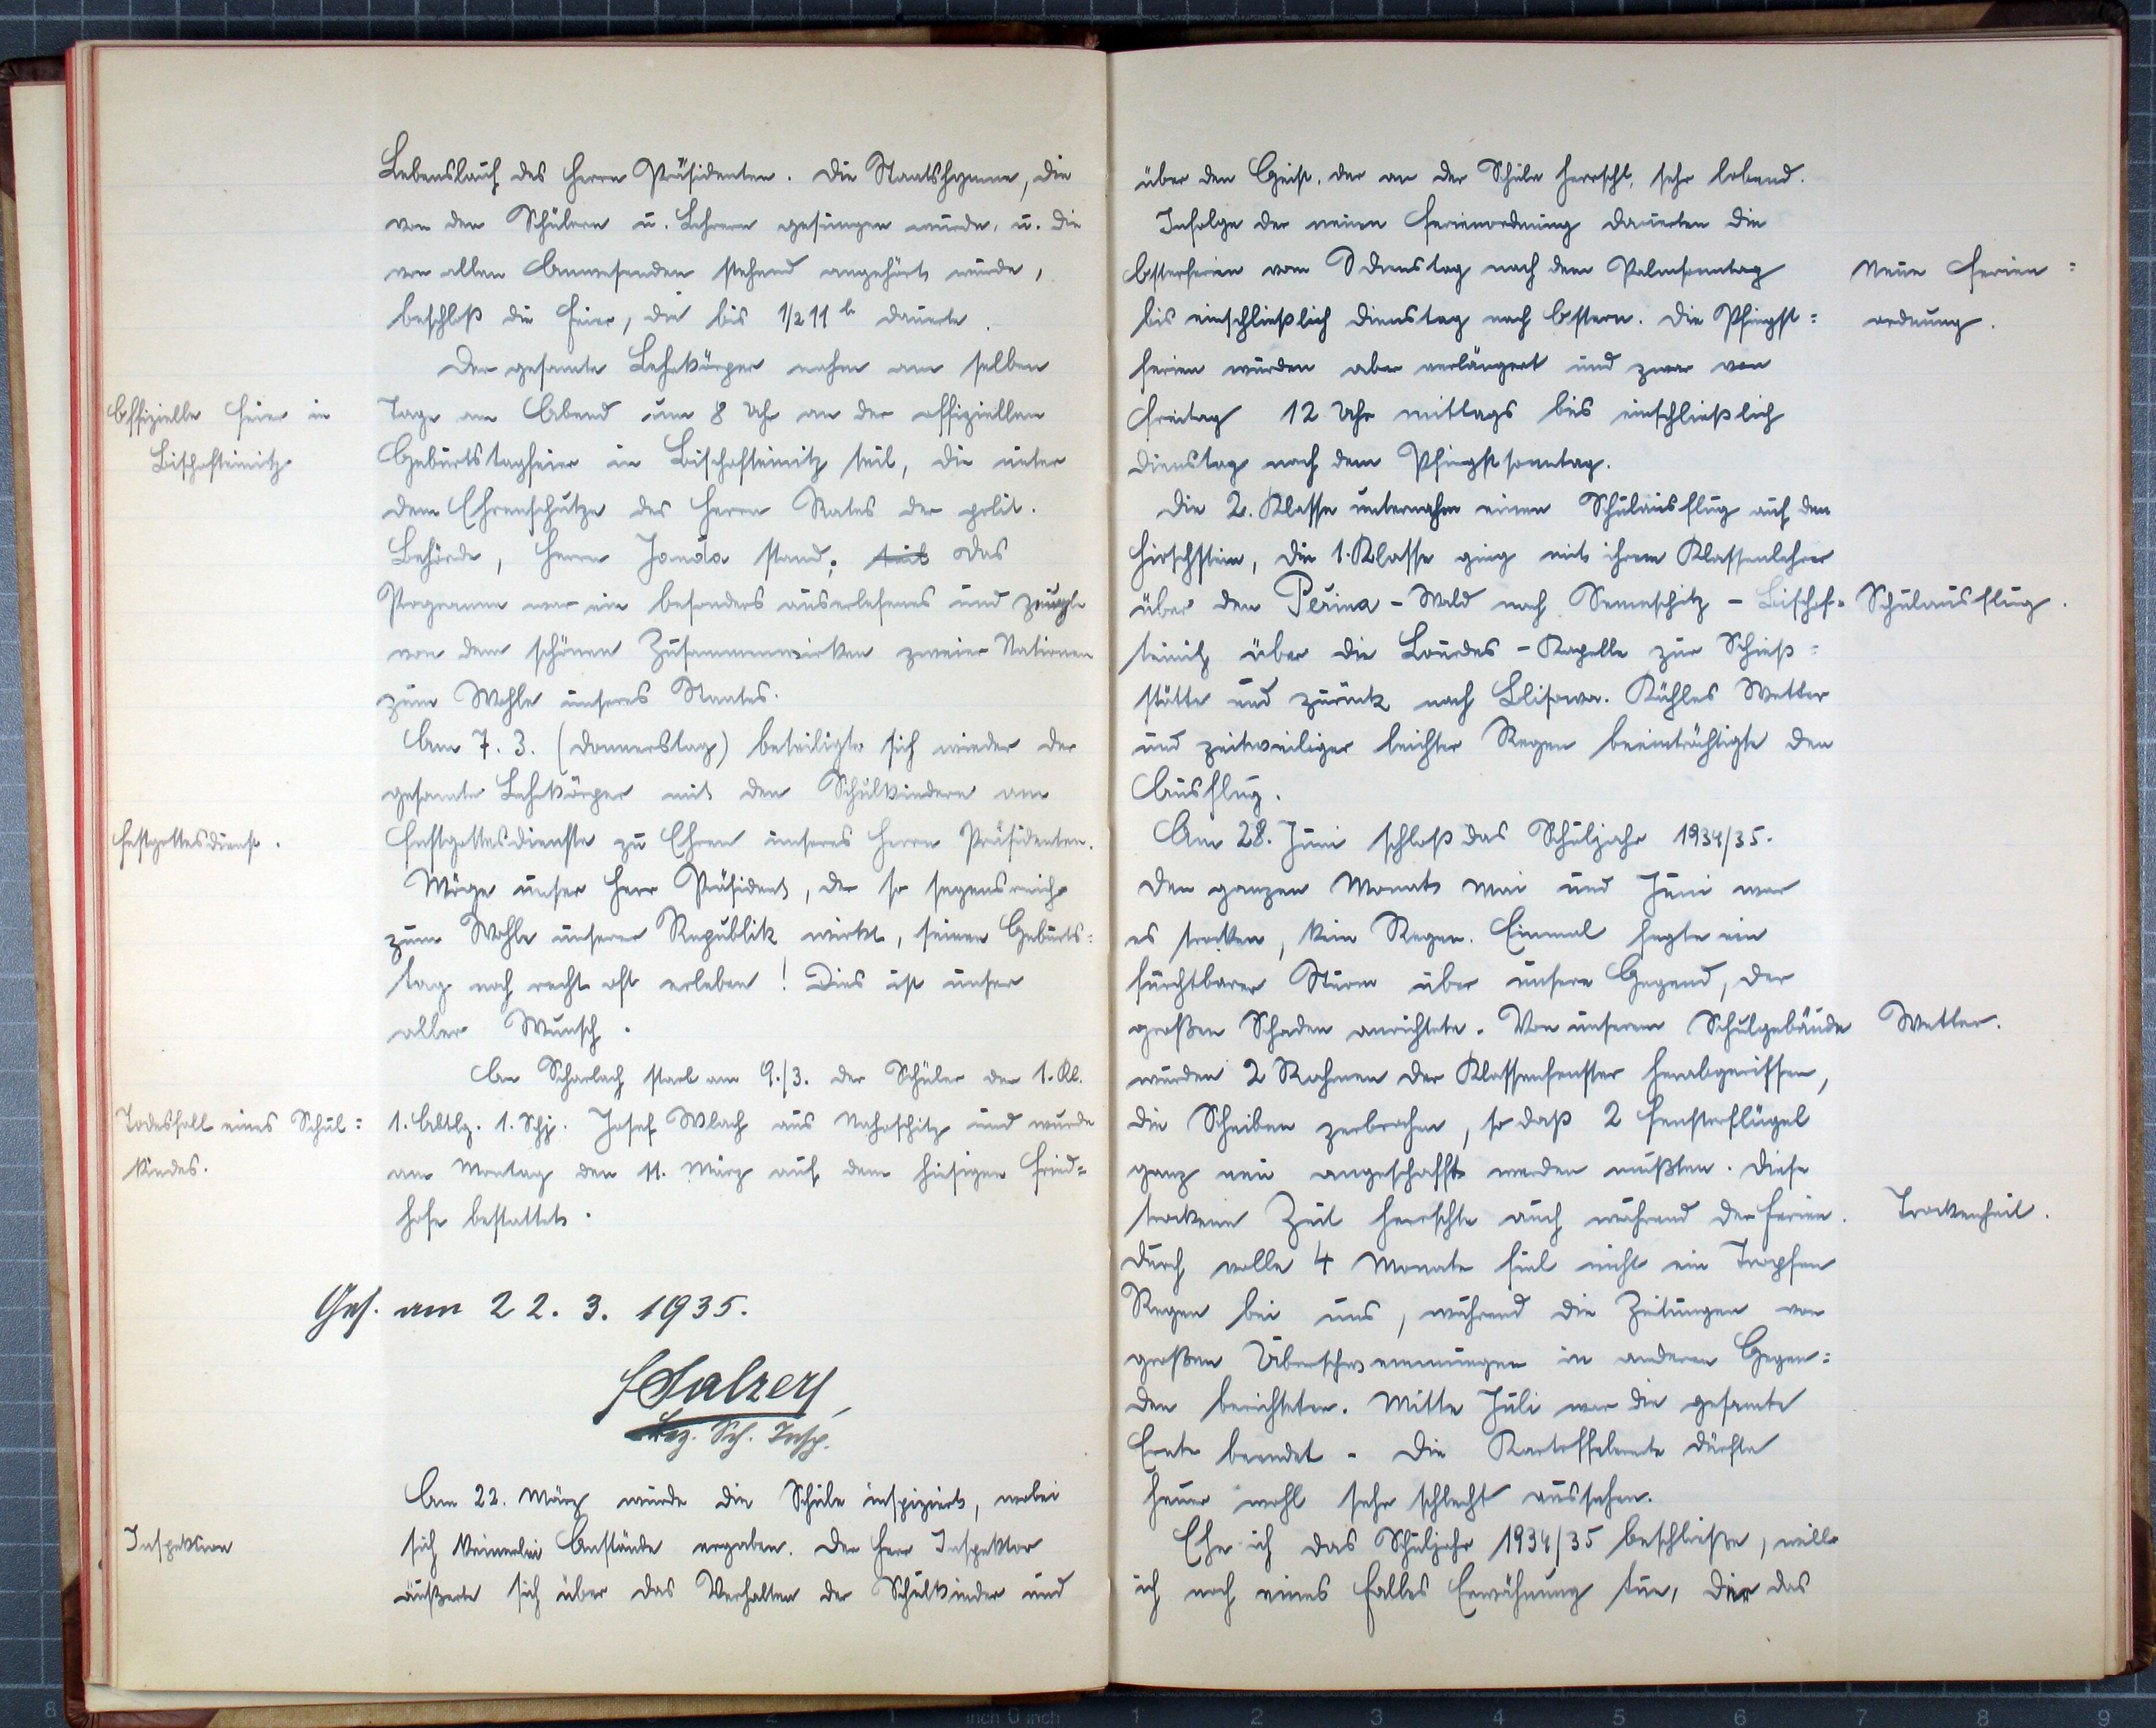 Lebenslauf des Herrn Präsidenten. Die Staatshymne, die
von den Schülern u. Lehrern gesungen wurde, u. die
von allen Anwesenden stehend angehört wurde,
beschloß die Feier, die bis 1/2 11 h dauerte.
Der gesamte Lehrkörper nahm am selben
Offizielle Feier in
Bischofteinitz.
Tage am Abend um 8 Uhr an der offiziellen
Geburtstagfeier in Bischofteinitz teil, die unter
dem Ehrenschutze des Herrn Rates der polit.
Behörde, Herrn Janda stand; das
Programm war ein besonders auserlesenes und zeugte
von dem schönen Zusammenwirken zweier Nationen
zum Wohle unseres Staates.
Am 7. 3. (Donnerstag) beteiligte sich wieder der
gesamte Lehrkörper mit den Schulkindern am
Festgottesdienst.
Festgottesdienste zu Ehren unseres Herrn Präsidenten.
Möge unser Herr Präsident, der so segensreich
zum Wohle unserer Republik wirkt, seinen Geburts=
tag noch recht oft erleben! Dies ist unser
aller Wunsch.
An Scharlach starb am 9./3. der Schüler der 1. Kl.
Todesfall eines Schul=
kindes.
1. Abtlg. 1. Schj. Josef Wlach aus und wurde
am Montag den 11. März auf dem hiesigen Fried=
hofe bestattet.
Ges. am 22. 3. 1935.
Salzer
Bez. Sch. Insp.
Am 22. März wurde die Schule inspiziert, wobei
Inspektion
sich keinerlei Anstände ergaben. Der Herr Inspektor
äußerte sich über das Verhalten der Schulkinder und
über den Geist, der an der Schule herrscht, sehr lobend.
Infolge der neuen Ferienordnung dauerten die
Osterferien vom Dienstag nach dem Palmsonntag
Neue Ferien=
ordnung.
bis einschließlich Dienstag nach Ostern. Die Pfingst=
ferien wurden aber verlängert und zwar von
Freitag 12 Uhr mittags bis einschließlich
Dienstag nach dem Pfingstsonntag.
Die 2. Klasse unternahm einen Schulausflug auf den
Hirschstein, die 1. Klasse ging mit ihrem Klassenlehrer
über den Peřina-Wald nach Semeschitz - Bischof=
Schulausflug.
teinitz über die Lourdes-Kapelle zur Schieß=
stätte und zurück nach Blisowa. Kühles Wetter
und zeitweiliger leichter Regen beeinträchtigte den
Ausflug.
Am 28. Juni schloß das Schuljahr 1934/35.
Den ganzen Monat Mai und Juni war
es trocken, kein Regen. Einmal fegte ein
furchtbarer Sturm über unsere Gegend, der
großen Schaden anrichtete. Von unserem Schulgebäude
Wetter.
wurden 2 Rahmen der Klassenfenster herabgerissen,
die Scheiben zerbrochen, so daß 2 Fensterflügel
ganz neu angeschafft werden mußten. Diese
trockene Zeit herrschte auch während der Ferien.
Trockenheit.
Durch volle 4 Monate fiel nicht ein Tropfen
Regen bei uns, während die Zeitungen von
großen Überschwemmungen in anderen Gegen=
den berichteten. Mitte Juli war die gesamte
Ernte beendet. Die Kartoffelernte dürfte
heuer wohl sehr schlecht aussehen.
Ehe ich das Schuljahr 1934/35 beschließe, will
ich noch eines Falles Erwähnung tun, der das